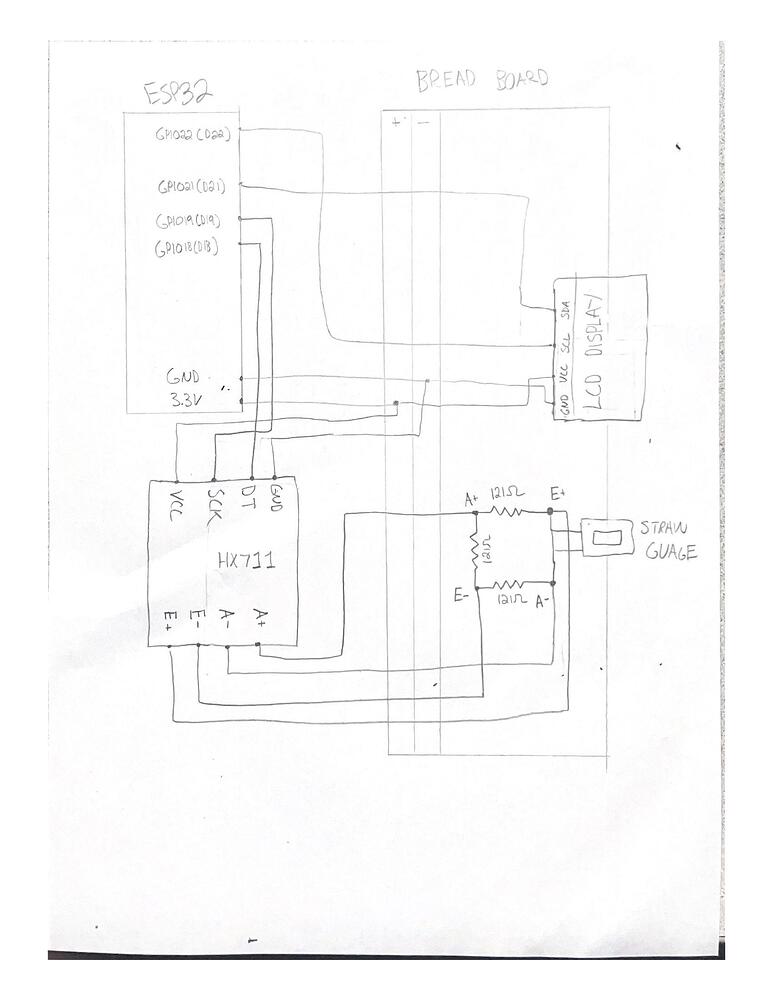 BREAD BOARD
ESP32
+ -
GPIO22(D22)
GPIO21(D21)
GPIO19(D19)
GPIO18(D18)
GND
3.3V
SDA
SCL
VCC
GND
LCD DISPLAY
VCC
SCK
DT
GND
HX711
E+
E-
A-
A+
A+
121Ω
E+
121Ω
E-
121Ω
A-
STRAIN
GUAGE